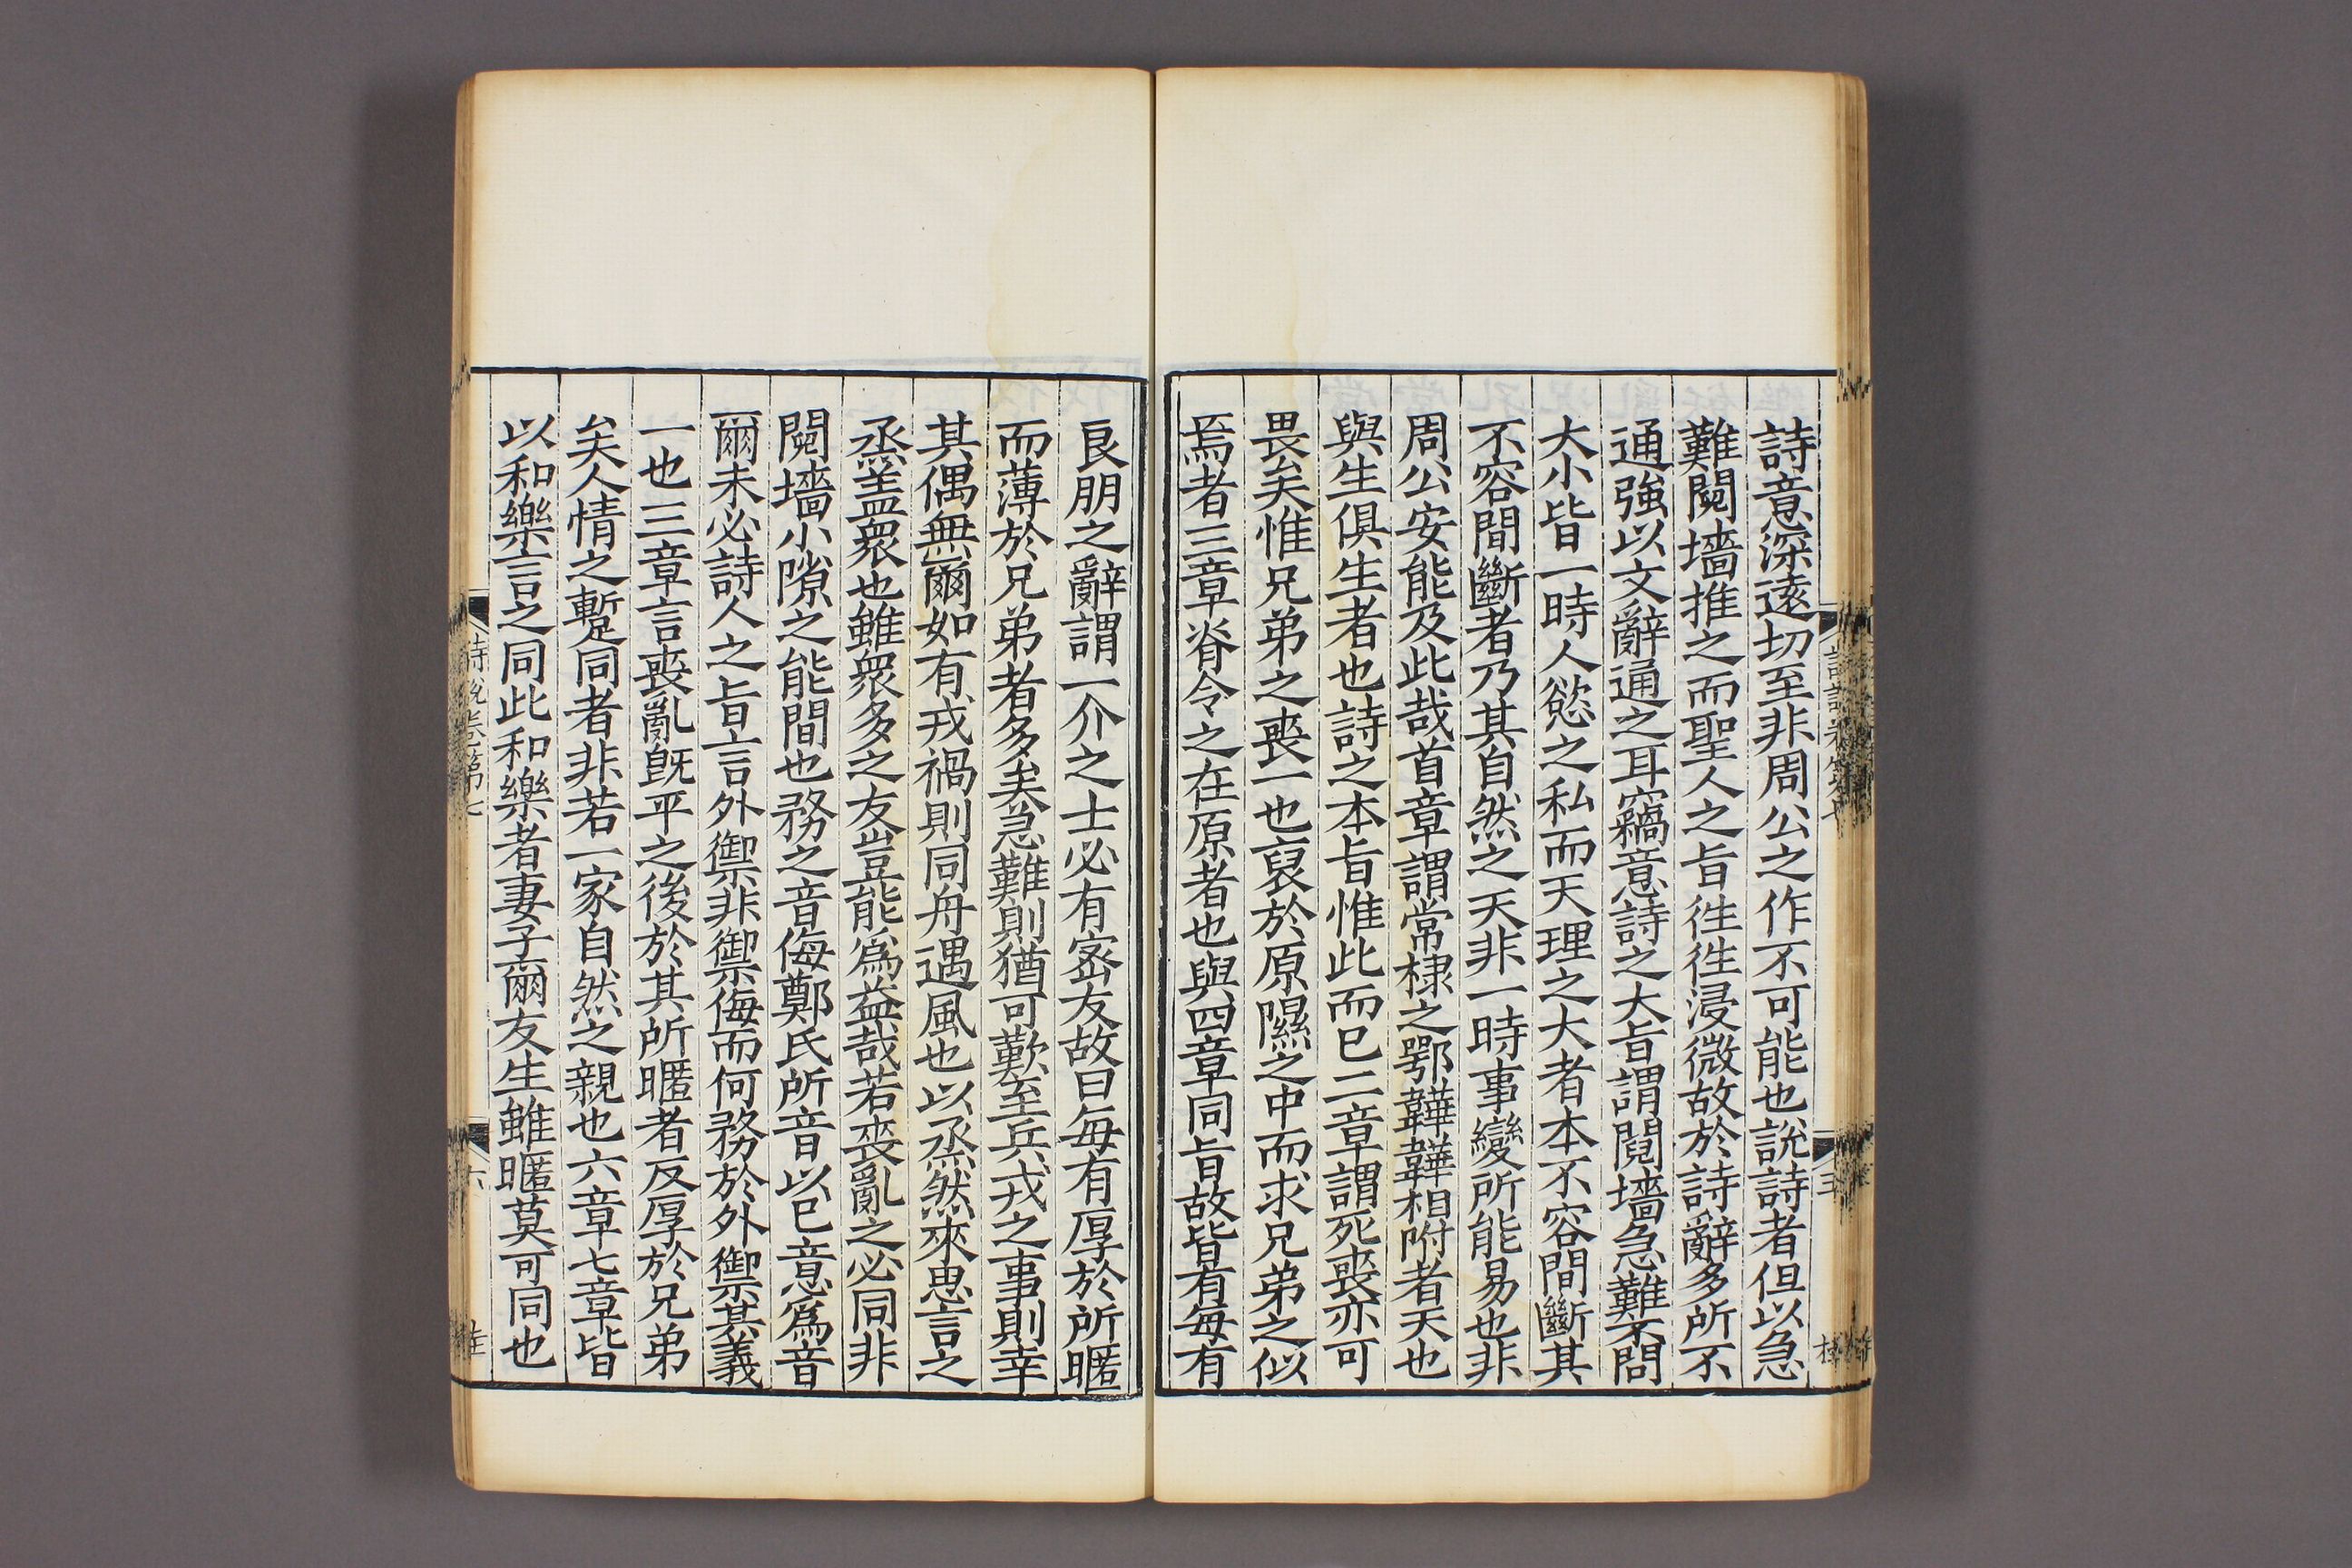 詩意深遠切至非周公之作不可能也說詩者但以急
難鬩墻推之而聖人之旨徃徃浸微故於詩辭多所不
通強以文辭通之耳竊意詩之大旨謂鬩墻急難不問
大小皆一時人慾之私而天理之大者本不容間斷其
不容間斷者乃其自然之天非一時事變所能易也非
周公安能及此哉首章謂常棣之鄂韡韡相附者天也
與生俱生者也詩之本旨惟此而已二章謂死喪亦可
畏矣惟兄弟之喪一也裒於原隰之中而求兄弟之似
焉者三章脊令之在原者也與四章同旨故皆有每有
良朋之辭謂一介之士必有密友故曰每有厚於所暱
而薄於兄弟者多矣急難則猶可歎至兵戎之事則幸
其偶無爾如有戎禍則同舟遇風也以烝然來思言之
烝盖衆也雖衆多之友豈能為益哉若喪亂之必同非
鬩墻小隙之能間也務之音侮鄭氏所音以已意為音
爾未必詩人之旨言外禦非禦侮而何務於外禦其義
一也三章言喪亂旣平之後於其所暱者反厚於兄弟
矣人情之暫同者非若一家自然之親也六章七章皆
以和樂言之同此和樂者妻子爾友生雖暱莫可同也
詩說卷第七
六